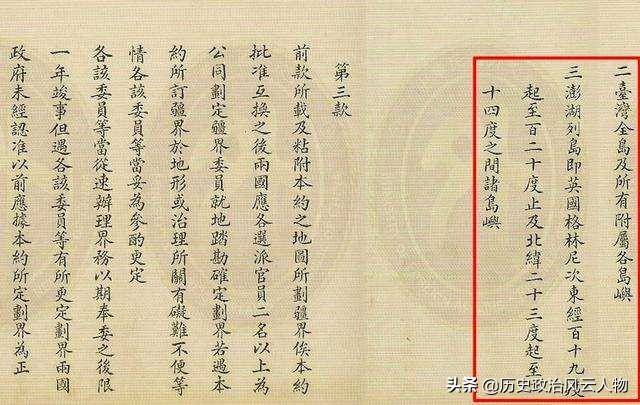 二臺灣全島及所有附屬各島嶼
三澎湖列島即英國格林尼次東經百十九度
起至百二十度止及北緯二十三度起至二
十四度之間諸島嶼
第三款
前款所載及粘附本約之地圖所劃疆界俟本約
批准互換之後兩國應各選派官員二名以上為
公同劃定疆界委員就地踏勘確定劃界若遇本
約所訂疆界於地形或治理所關有礙難不便等
情各該委員等當妥為參酌更定
各該委員等當從速辦理界務以期奉委之後限
一年竣事但遇各該委員等有所更定劃界兩國
政府未經認准以前應據本約所定劃界為正
头条 @历史政治风云人物